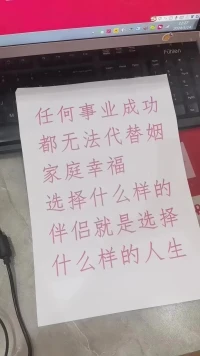 任何事业成功
都无法代替姻
家庭幸福
选择什么样的
伴侣就是选择
什么样的人生